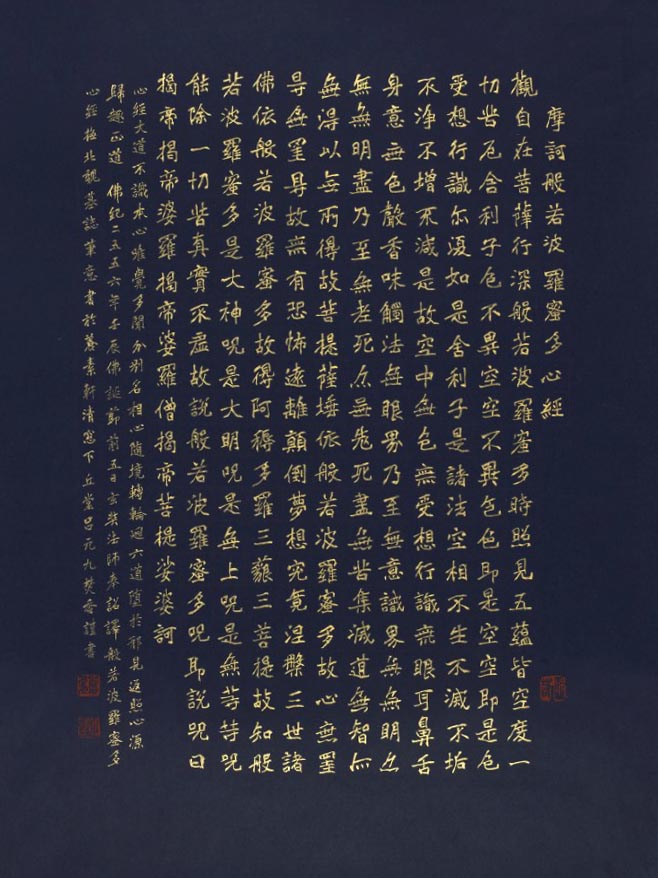 摩訶般若波羅蜜多心經
觀自在菩薩行深般若波羅蜜多時照見五蘊皆空度一
切苦厄舍利子色不異空空不異色色即是空空即是色
受想行識亦復如是舍利子是諸法空相不生不滅不垢
不淨不增不減是故空中無色無受想行識無眼耳鼻舌
身意無色聲香味觸法無眼界乃至無意識界無無明亦
無無明盡乃至無老死亦無老死盡無苦集滅道無智亦
無得以無所得故菩提薩埵依般若波羅蜜多故心無罣
㝵無罣㝵故無有恐怖遠離顛倒夢想究竟涅槃三世諸
佛依般若波羅蜜多故得阿耨多羅三藐三菩提故知般
若波羅蜜多是大神呪是大明呪是無上呪是無等等呪
能除一切苦真實不虛故說般若波羅蜜多呪即說呪曰
揭帝揭帝婆羅揭帝婆羅僧揭帝菩提娑婆訶
心經大道不識本心唯覺多聞分別名相心隨境轉輪迴六道墮於邪見返照心源
歸趣正道 佛紀二五五六年壬辰佛誕節前五日玄奘法師奉詔譯般若波羅蜜多
心經 北魏墓誌筆意書於 素軒清窓下 丘堂呂元九焚香謹書